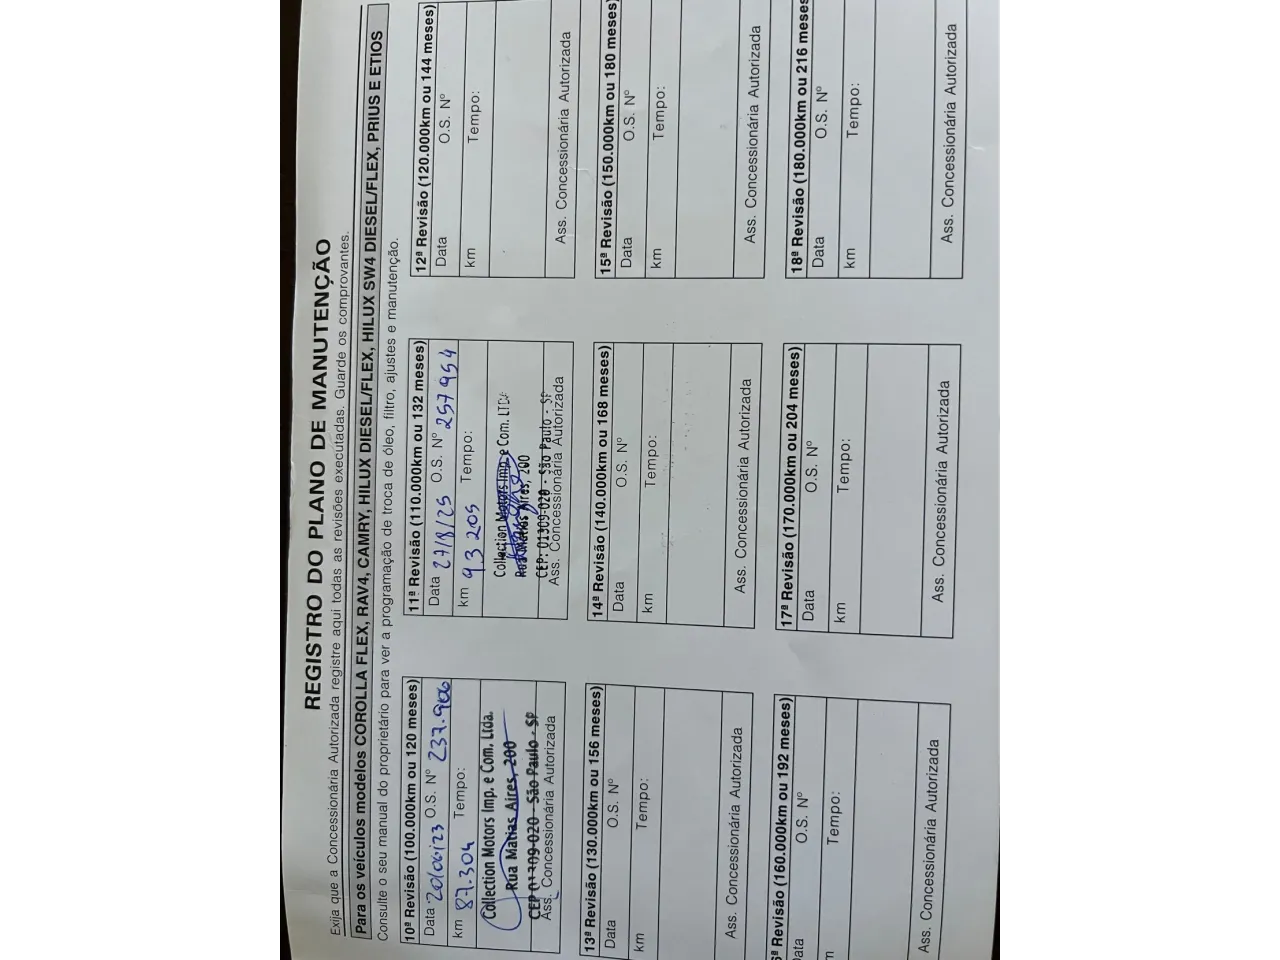 REGISTRO DO PLANO DE MANUTENÇÃO
Exija que a Concessionária Autorizada registre aqui todas as revisões executadas. Guarde os comprovantes.
Para os veículos modelos COROLLA FLEX, RAV4, CAMRY, HILUX DIESEL/FLEX, HILUX SW4 DIESEL/FLEX, PRIUS E ETIOS
Consulte o seu manual do proprietário para ver a programação de troca de óleo, filtro, ajustes e manutenção.
10ª Revisão (100.000km ou 120 meses)
Data 20/06/23 O.S. Nº 237.906
km 87.304 Tempo:
Collection Motors Imp. e Com. Ltda.
Rua Matias Aires, 200
CEP 01309-020 - São Paulo - SP
Ass. Concessionária Autorizada
11ª Revisão (110.000km ou 132 meses)
Data 27/8/25 O.S. Nº 257954
km 93205 Tempo:
Collection Motors Imp. e Com. LTDA
Rua Matias Aires, 200
CEP: 01309-020 - São Paulo - SP
Ass. Concessionária Autorizada
12ª Revisão (120.000km ou 144 meses)
Data O.S. Nº
km Tempo:
Ass. Concessionária Autorizada
13ª Revisão (130.000km ou 156 meses)
Data O.S. Nº
km Tempo:
Ass. Concessionária Autorizada
14ª Revisão (140.000km ou 168 meses)
Data O.S. Nº
km Tempo:
Ass. Concessionária Autorizada
15ª Revisão (150.000km ou 180 meses)
Data O.S. Nº
km Tempo:
Ass. Concessionária Autorizada
6ª Revisão (160.000km ou 192 meses)
ata O.S. Nº
m Tempo:
Ass. Concessionária Autorizada
17ª Revisão (170.000km ou 204 meses)
Data O.S. Nº
km Tempo:
Ass. Concessionária Autorizada
18ª Revisão (180.000km ou 216 meses
Data O.S. Nº
km Tempo:
Ass. Concessionária Autorizada